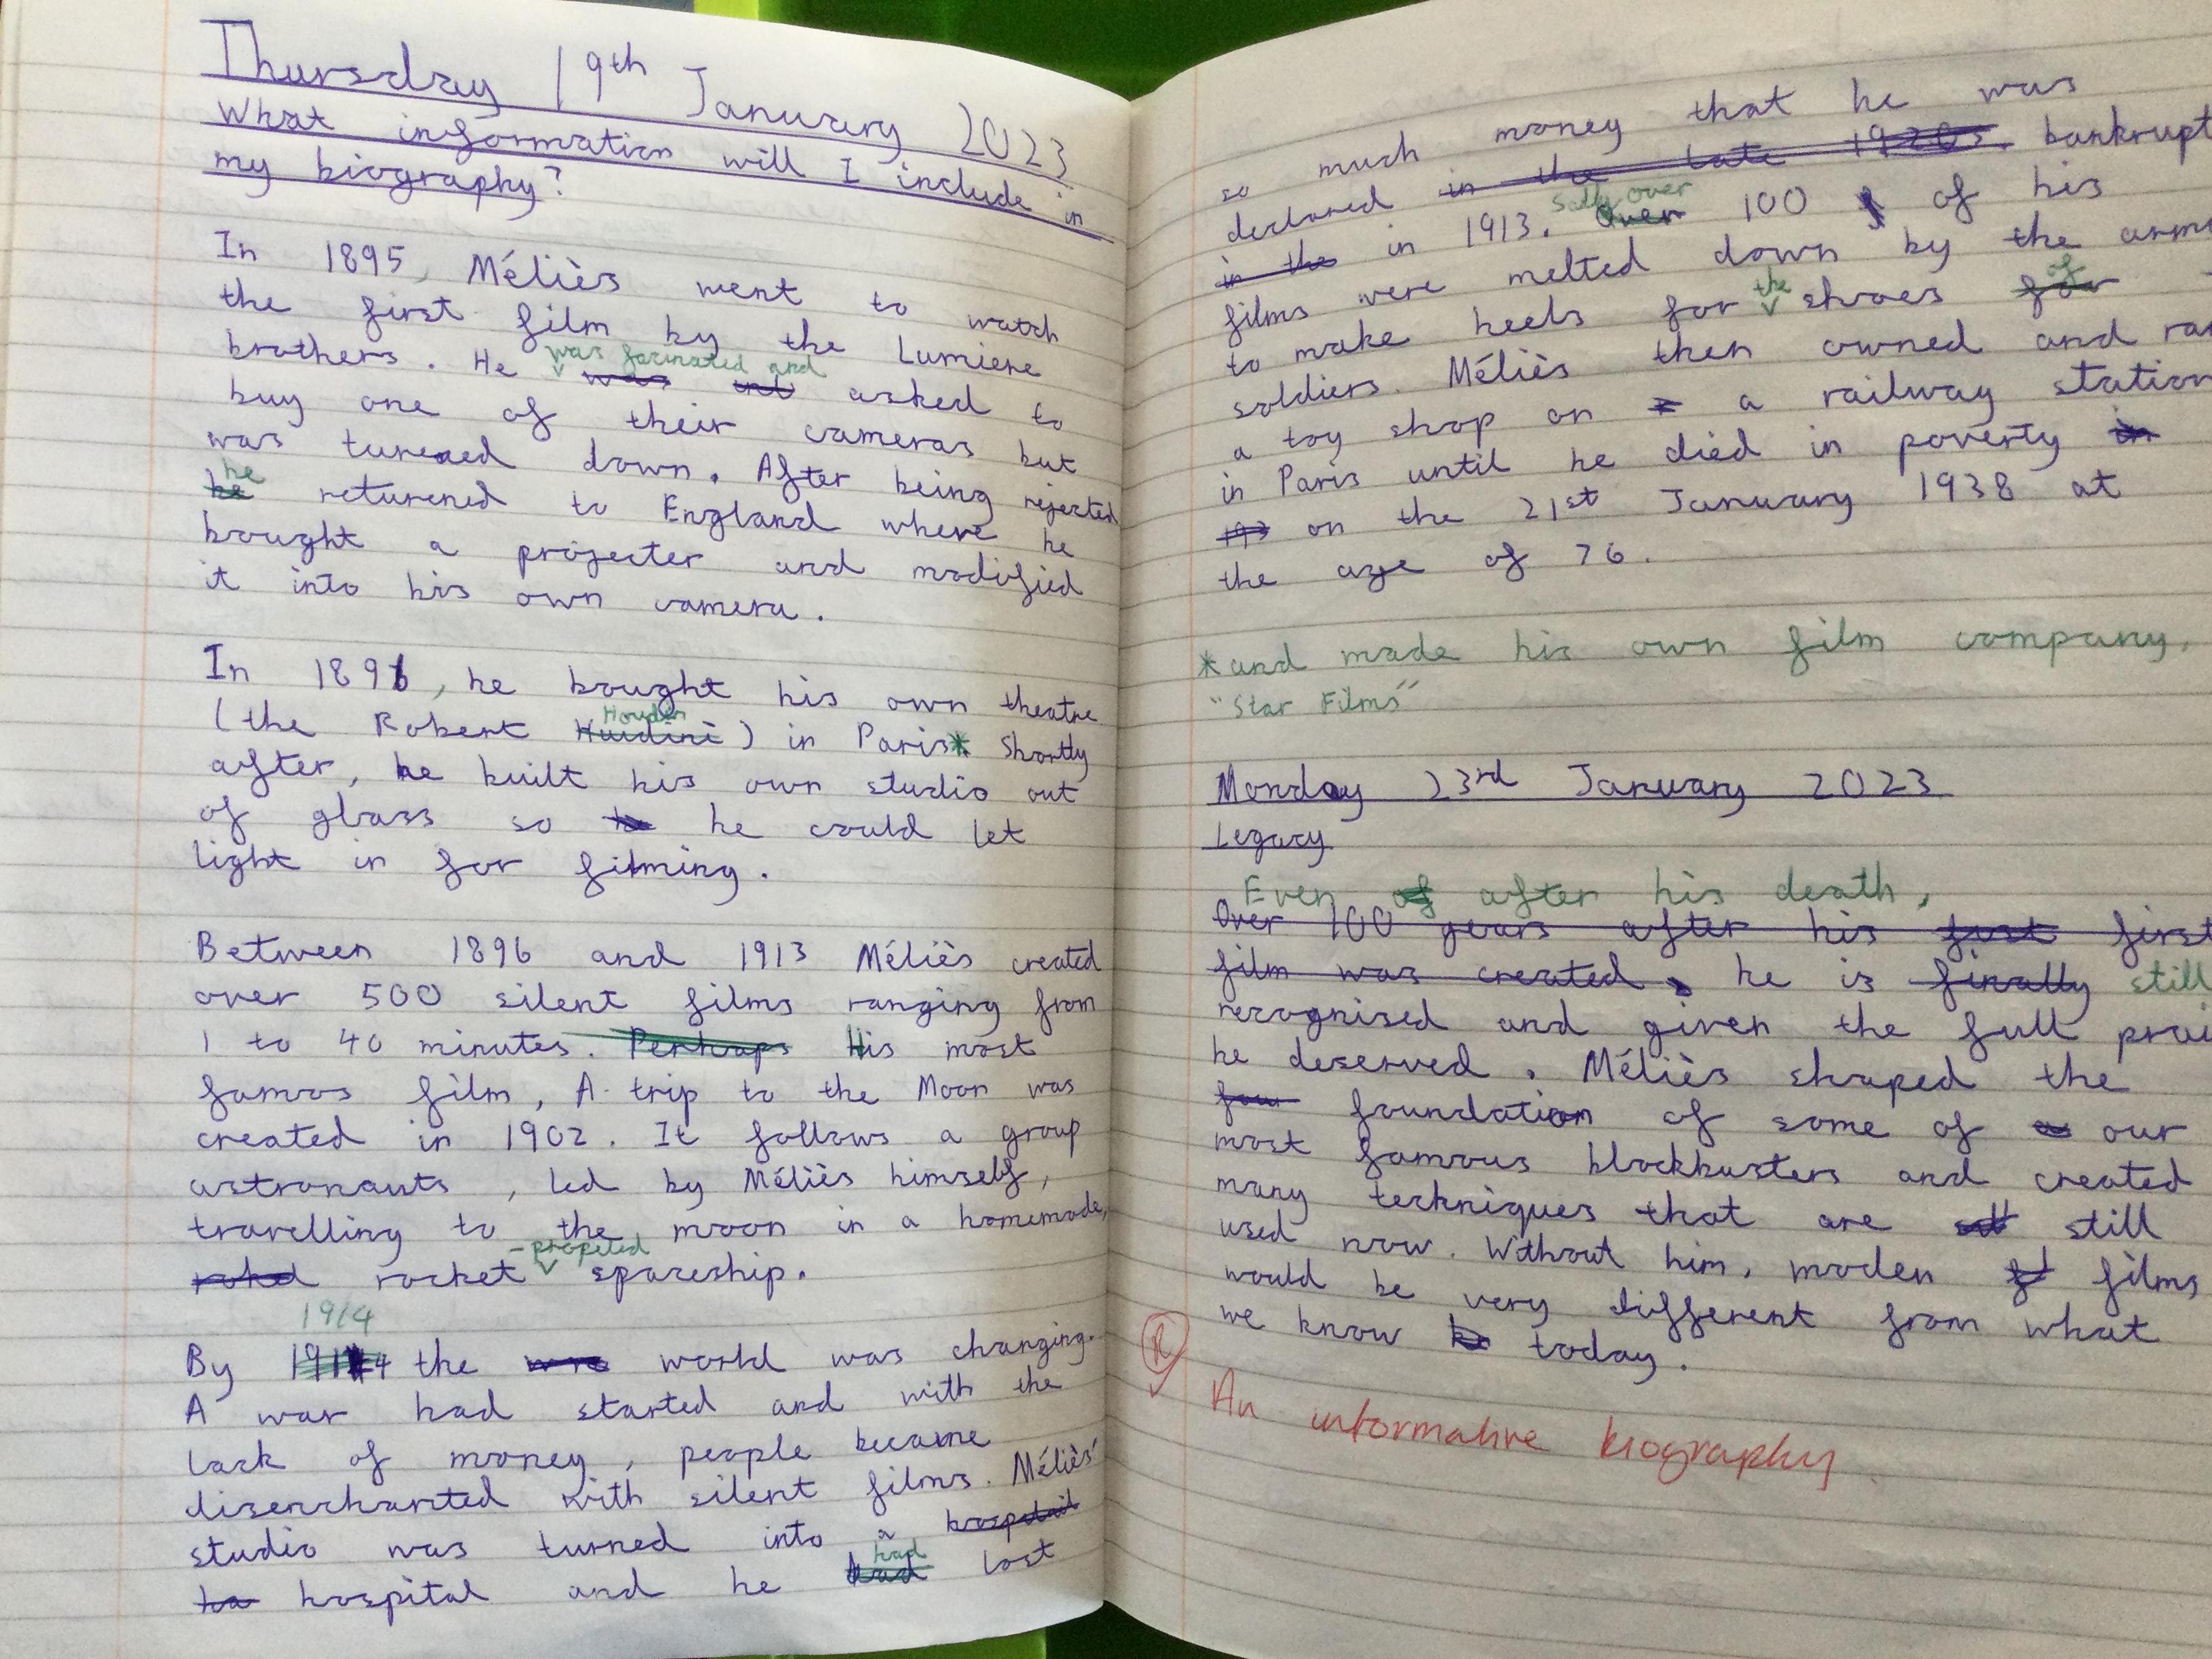 Thursday 19th January 2023
What information will I include in
my biography?
In 1895, Méliès went to watch
the first film by the Lumiere
brothers. He was facinated and asked to
buy one of their cameras but
was turened down. After being rejected
he returened to England where he
bought a projecter and modified
it into his own camera.
In 1896, he bought his own theatre
(the Robert Houdin) in Paris* Shortly
after, he built his own studio out
of glass so he could let
light in for filming.
Between 1896 and 1913 Méliès created
over 500 silent films ranging from
1 to 40 minutes. His most
famos film, A trip to the Moon was
created in 1902. It follows a group
astronauts, led by Méliès himself,
travelling to the moon in a homemade,
rocket-propeled spaceship.
By 1914 the world was changing.
A war had started and with the
lack of money, people became
disenchanted with silent films. Méliès'
studio was turned into a
hospital and he had lost
so much money that he was
declared bankrupt
in 1913. Sally over 100 of his
films were melted down by the
to make heels for the shoes of
soldiers. Méliès then owned and
a toy shop on a railway station
in Paris until he died in poverty
on the 21st January 1938 at
the age of 76.
*and made his own film company,
"Star Films"
Monday 23rd January 2023
Legacy
Even after his death,
he is still
recognised and given the full
he deserved. Méliès shaped the
foundation of some of our
most famous blockbusters and created
many techniques that are still
used now. Without him, moden films
would be very different from what
we know today.
R
An informative biography.